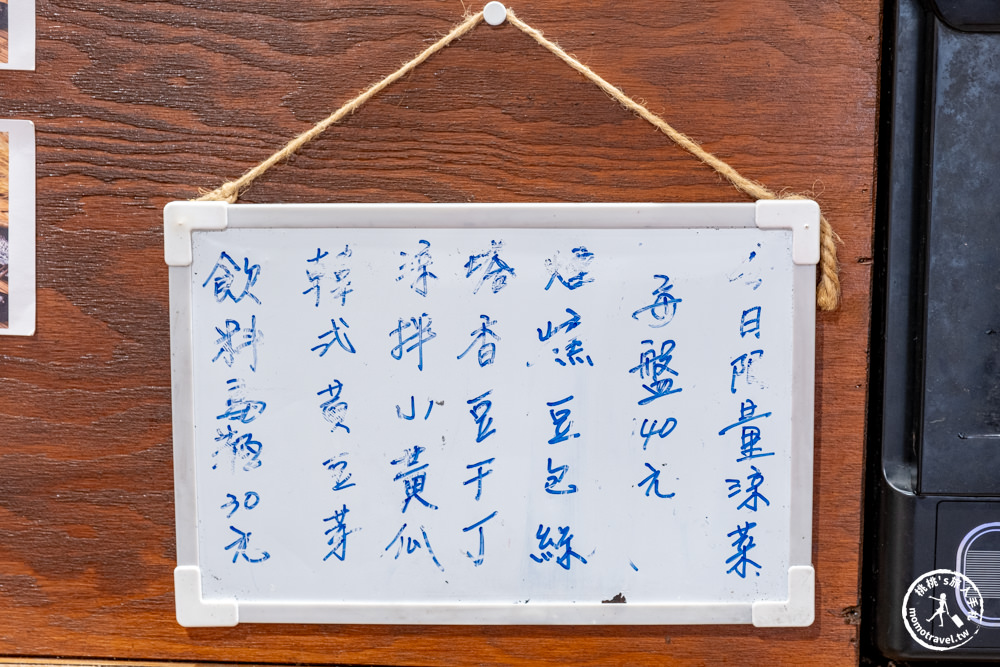 今日限量涼菜
每盤40元
煙燻豆包絲
塔香豆干丁
涼拌小黃瓜
韓式黃豆芽
飲料每瓶30元
桃桃's旅人手札
momotravel.tw